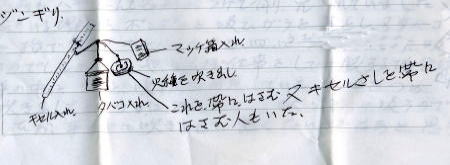 ジンギリ.
マッチ箱入れ.
火種を吹き出し
キセル入れ.
タバコ入れ.
これを帯にはさむ又キセルさしと帯に
はさむ人もいた.